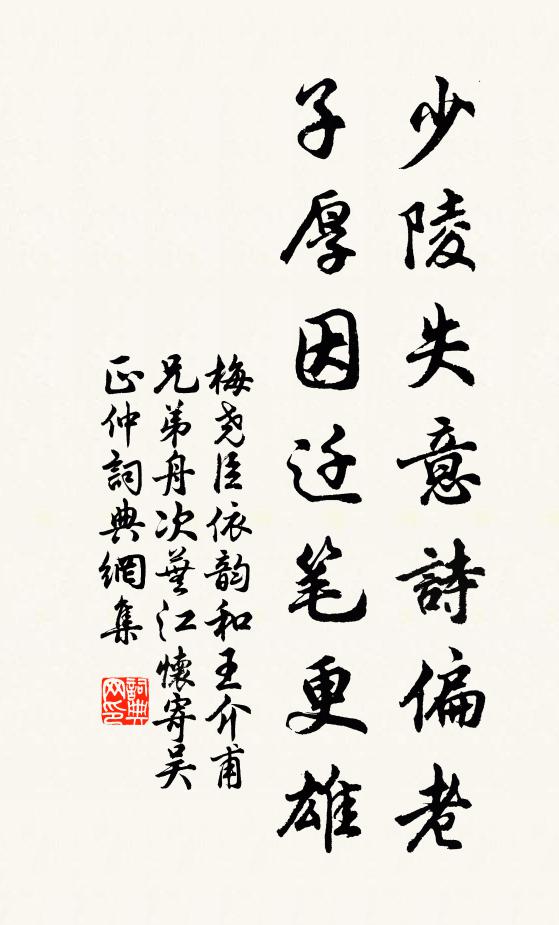 少陵失意詩偏老
子厚因迁笔更雄
梅尧臣依韵和王介甫
兄弟舟次蕪江懷寄吴
正仲詞典網集
詞典
网印